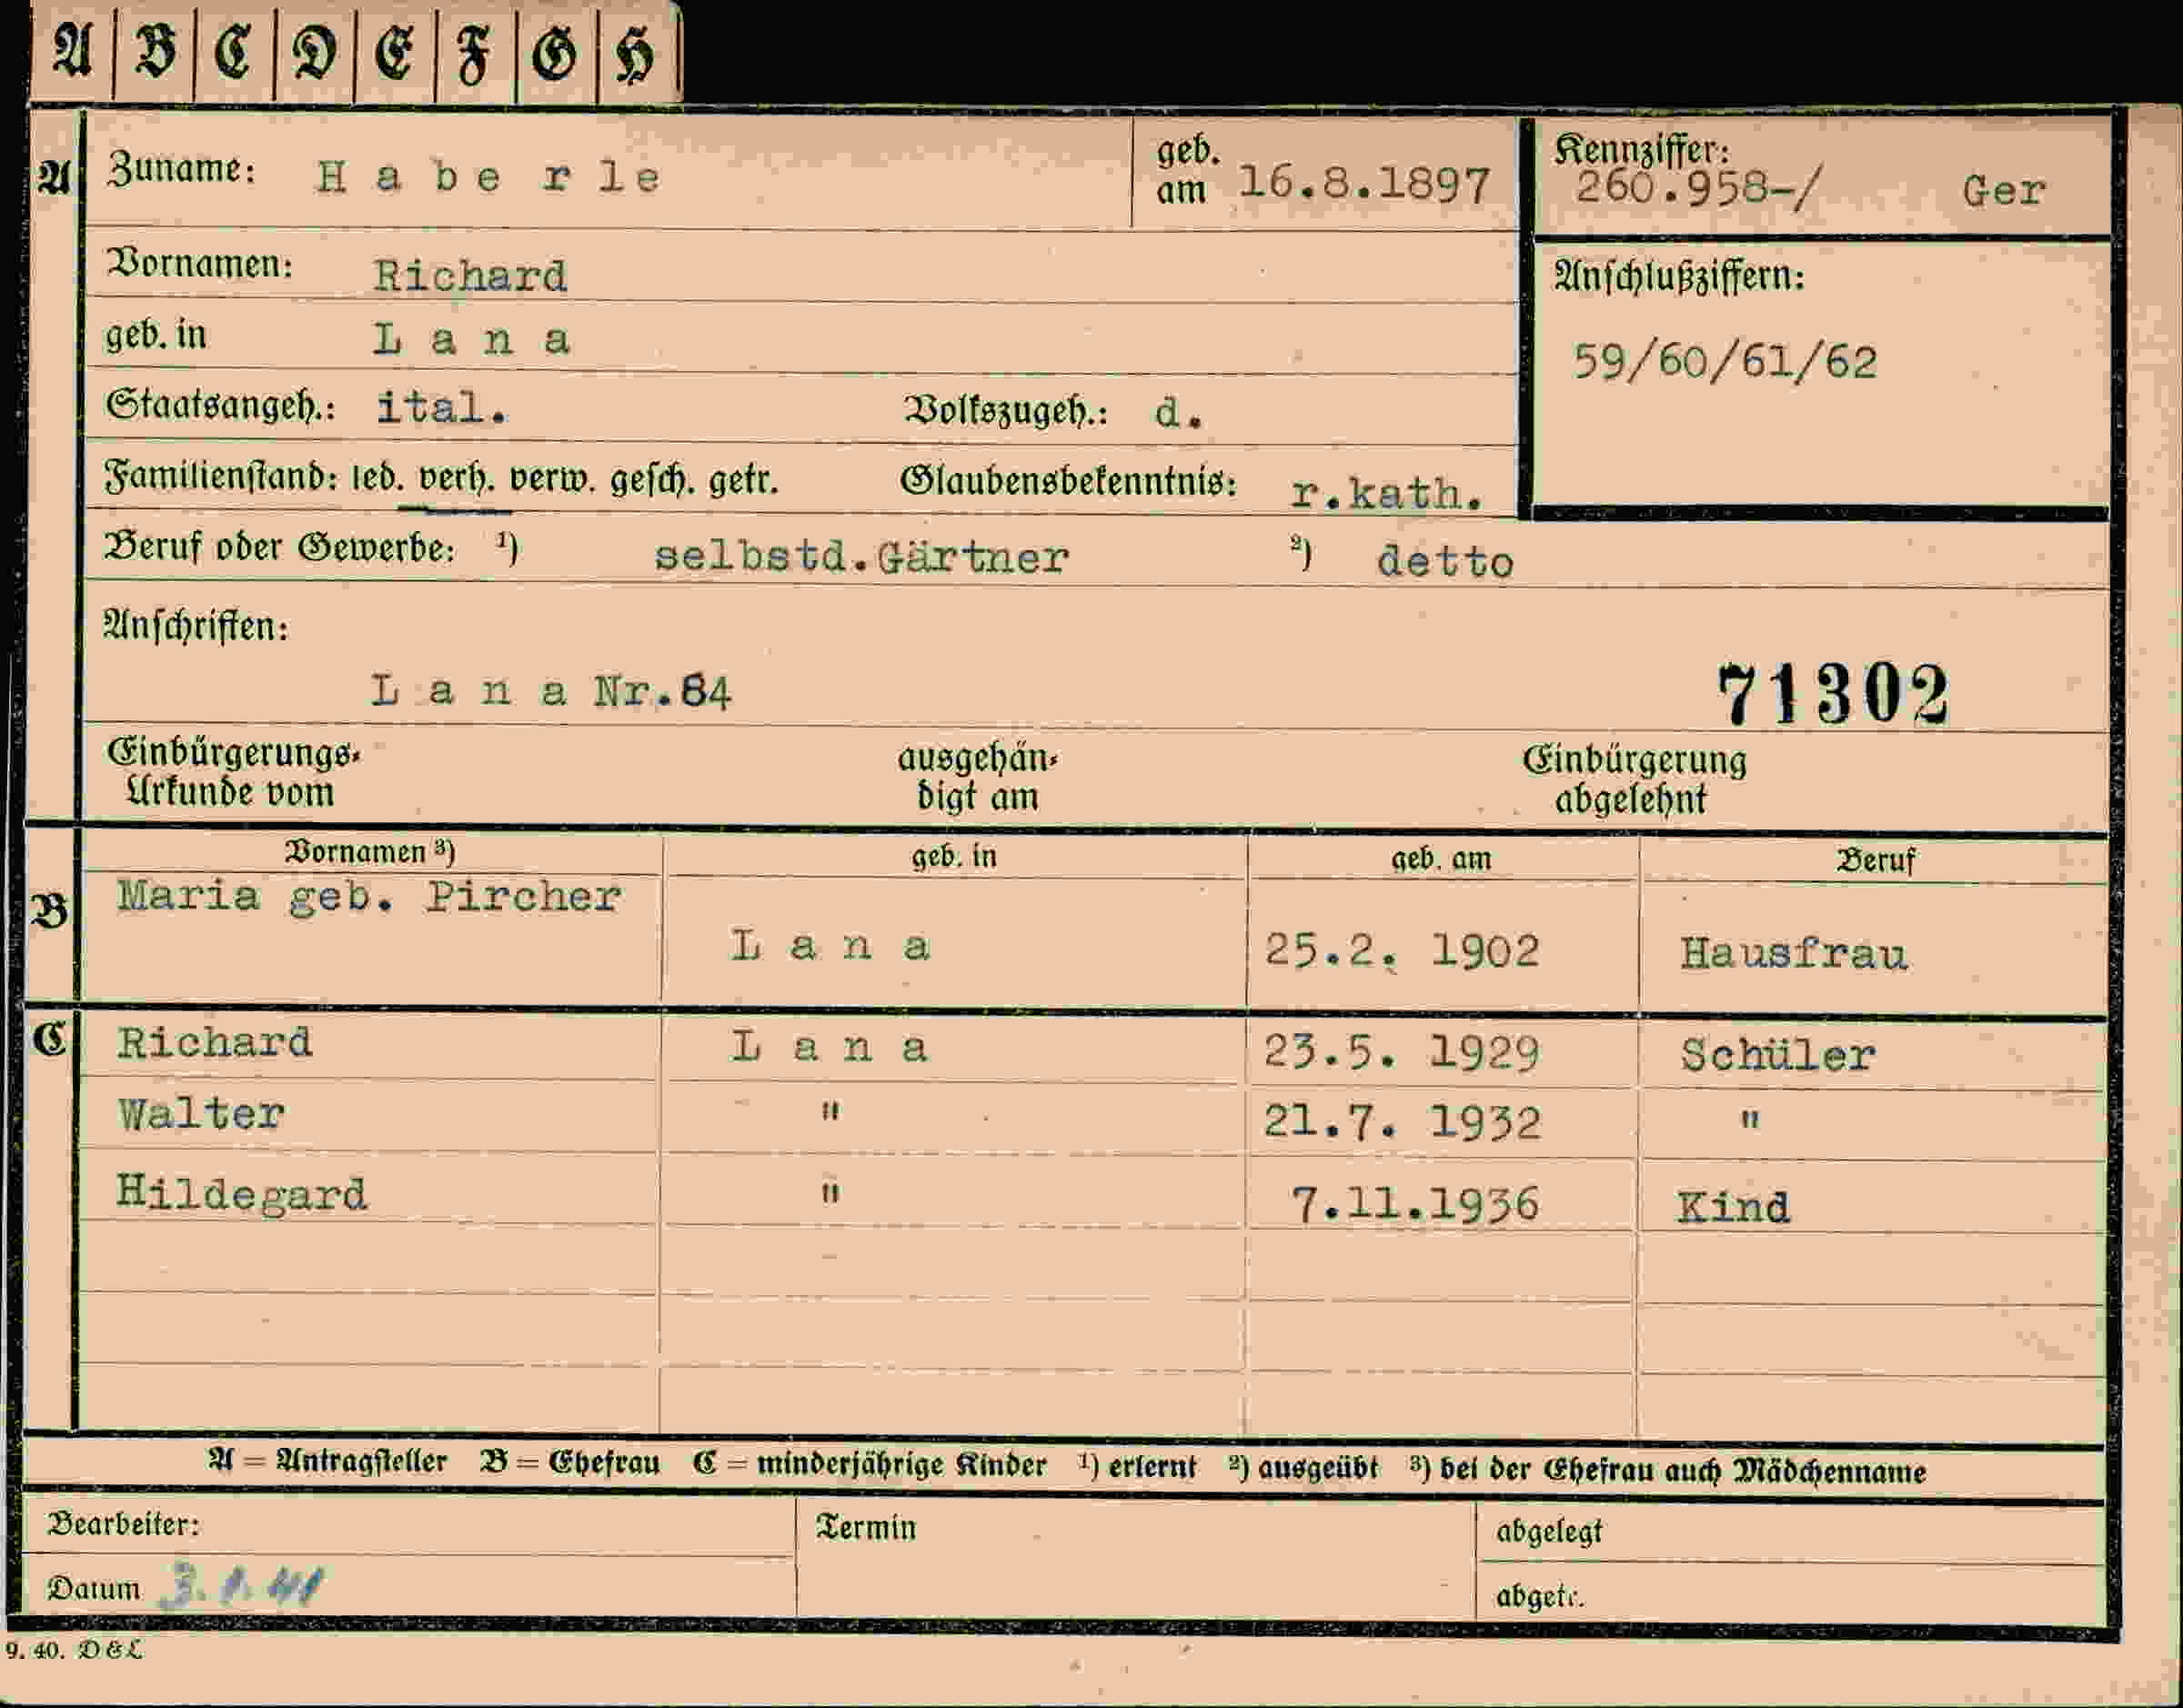 A B C D E F G H
A Zuname: Haberle geb. am 16.8.1897 Kennziffer: 260.958-/ Ger
Vornamen: Richard Anschlußziffern:
geb. in Lana 59/60/61/62
Staatsangeh.: ital. Volkszugeh.: d.
Familienstand: led. verh. verw. gesch. getr. Glaubensbekenntnis: r.kath.
Beruf oder Gewerbe: ¹) selbstd.Gärtner ²) detto
Anschriften:
Lana Nr.84 71302
Einbürgerungs- Urkunde vom ausgehän- digt am Einbürgerung abgelehnt
Vornamen ³) geb. in geb. am Beruf
B Maria geb. Pircher
Lana 25.2. 1902 Hausfrau
C Richard Lana 23.5. 1929 Schüler
Walter " 21.7. 1932 "
Hildegard " 7.11.1936 Kind
A = Antragsteller B = Ehefrau C = minderjährige Kinder ¹) erlernt ²) ausgeübt ³) bei der Ehefrau auch Mädchenname
Bearbeiter: Termin abgelegt
Datum abgetr.
9. 40. D & L